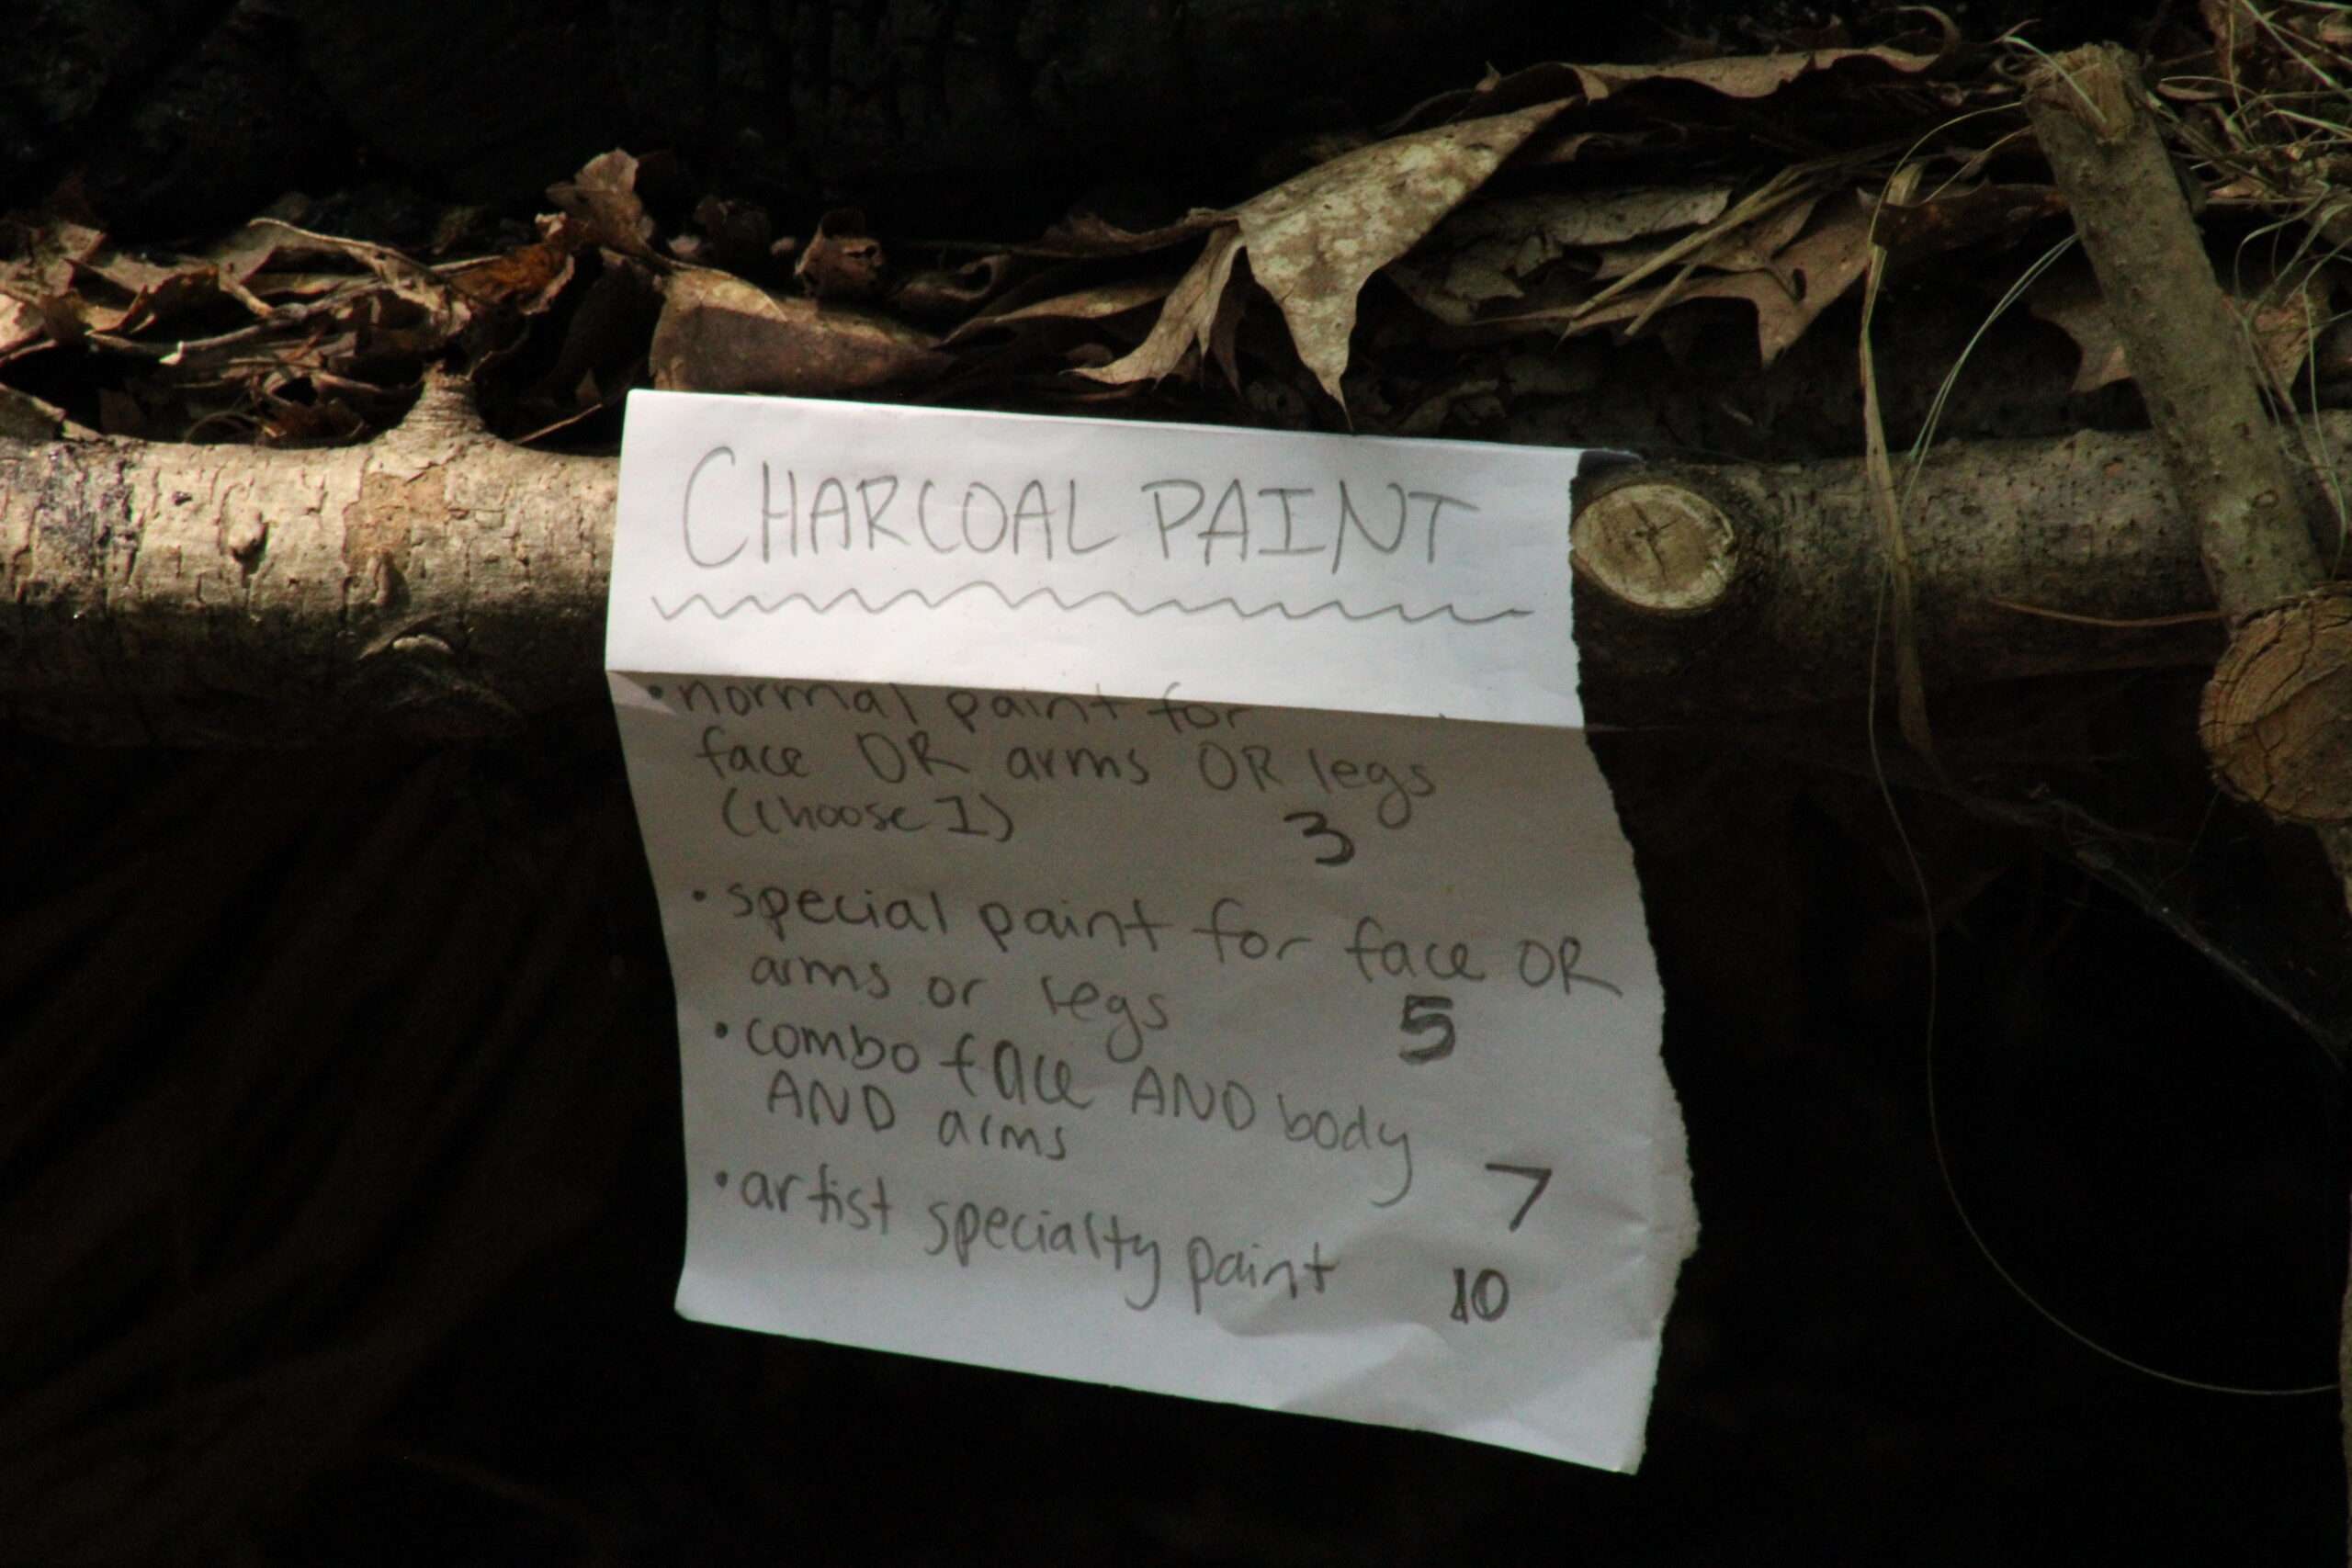 CHARCOAL PAINT
•normal paint for
face OR arms OR legs
(choose 1) 3
•special paint for face OR
arms or legs 5
•combo face AND body
AND arms 7
•artist specialty paint 10